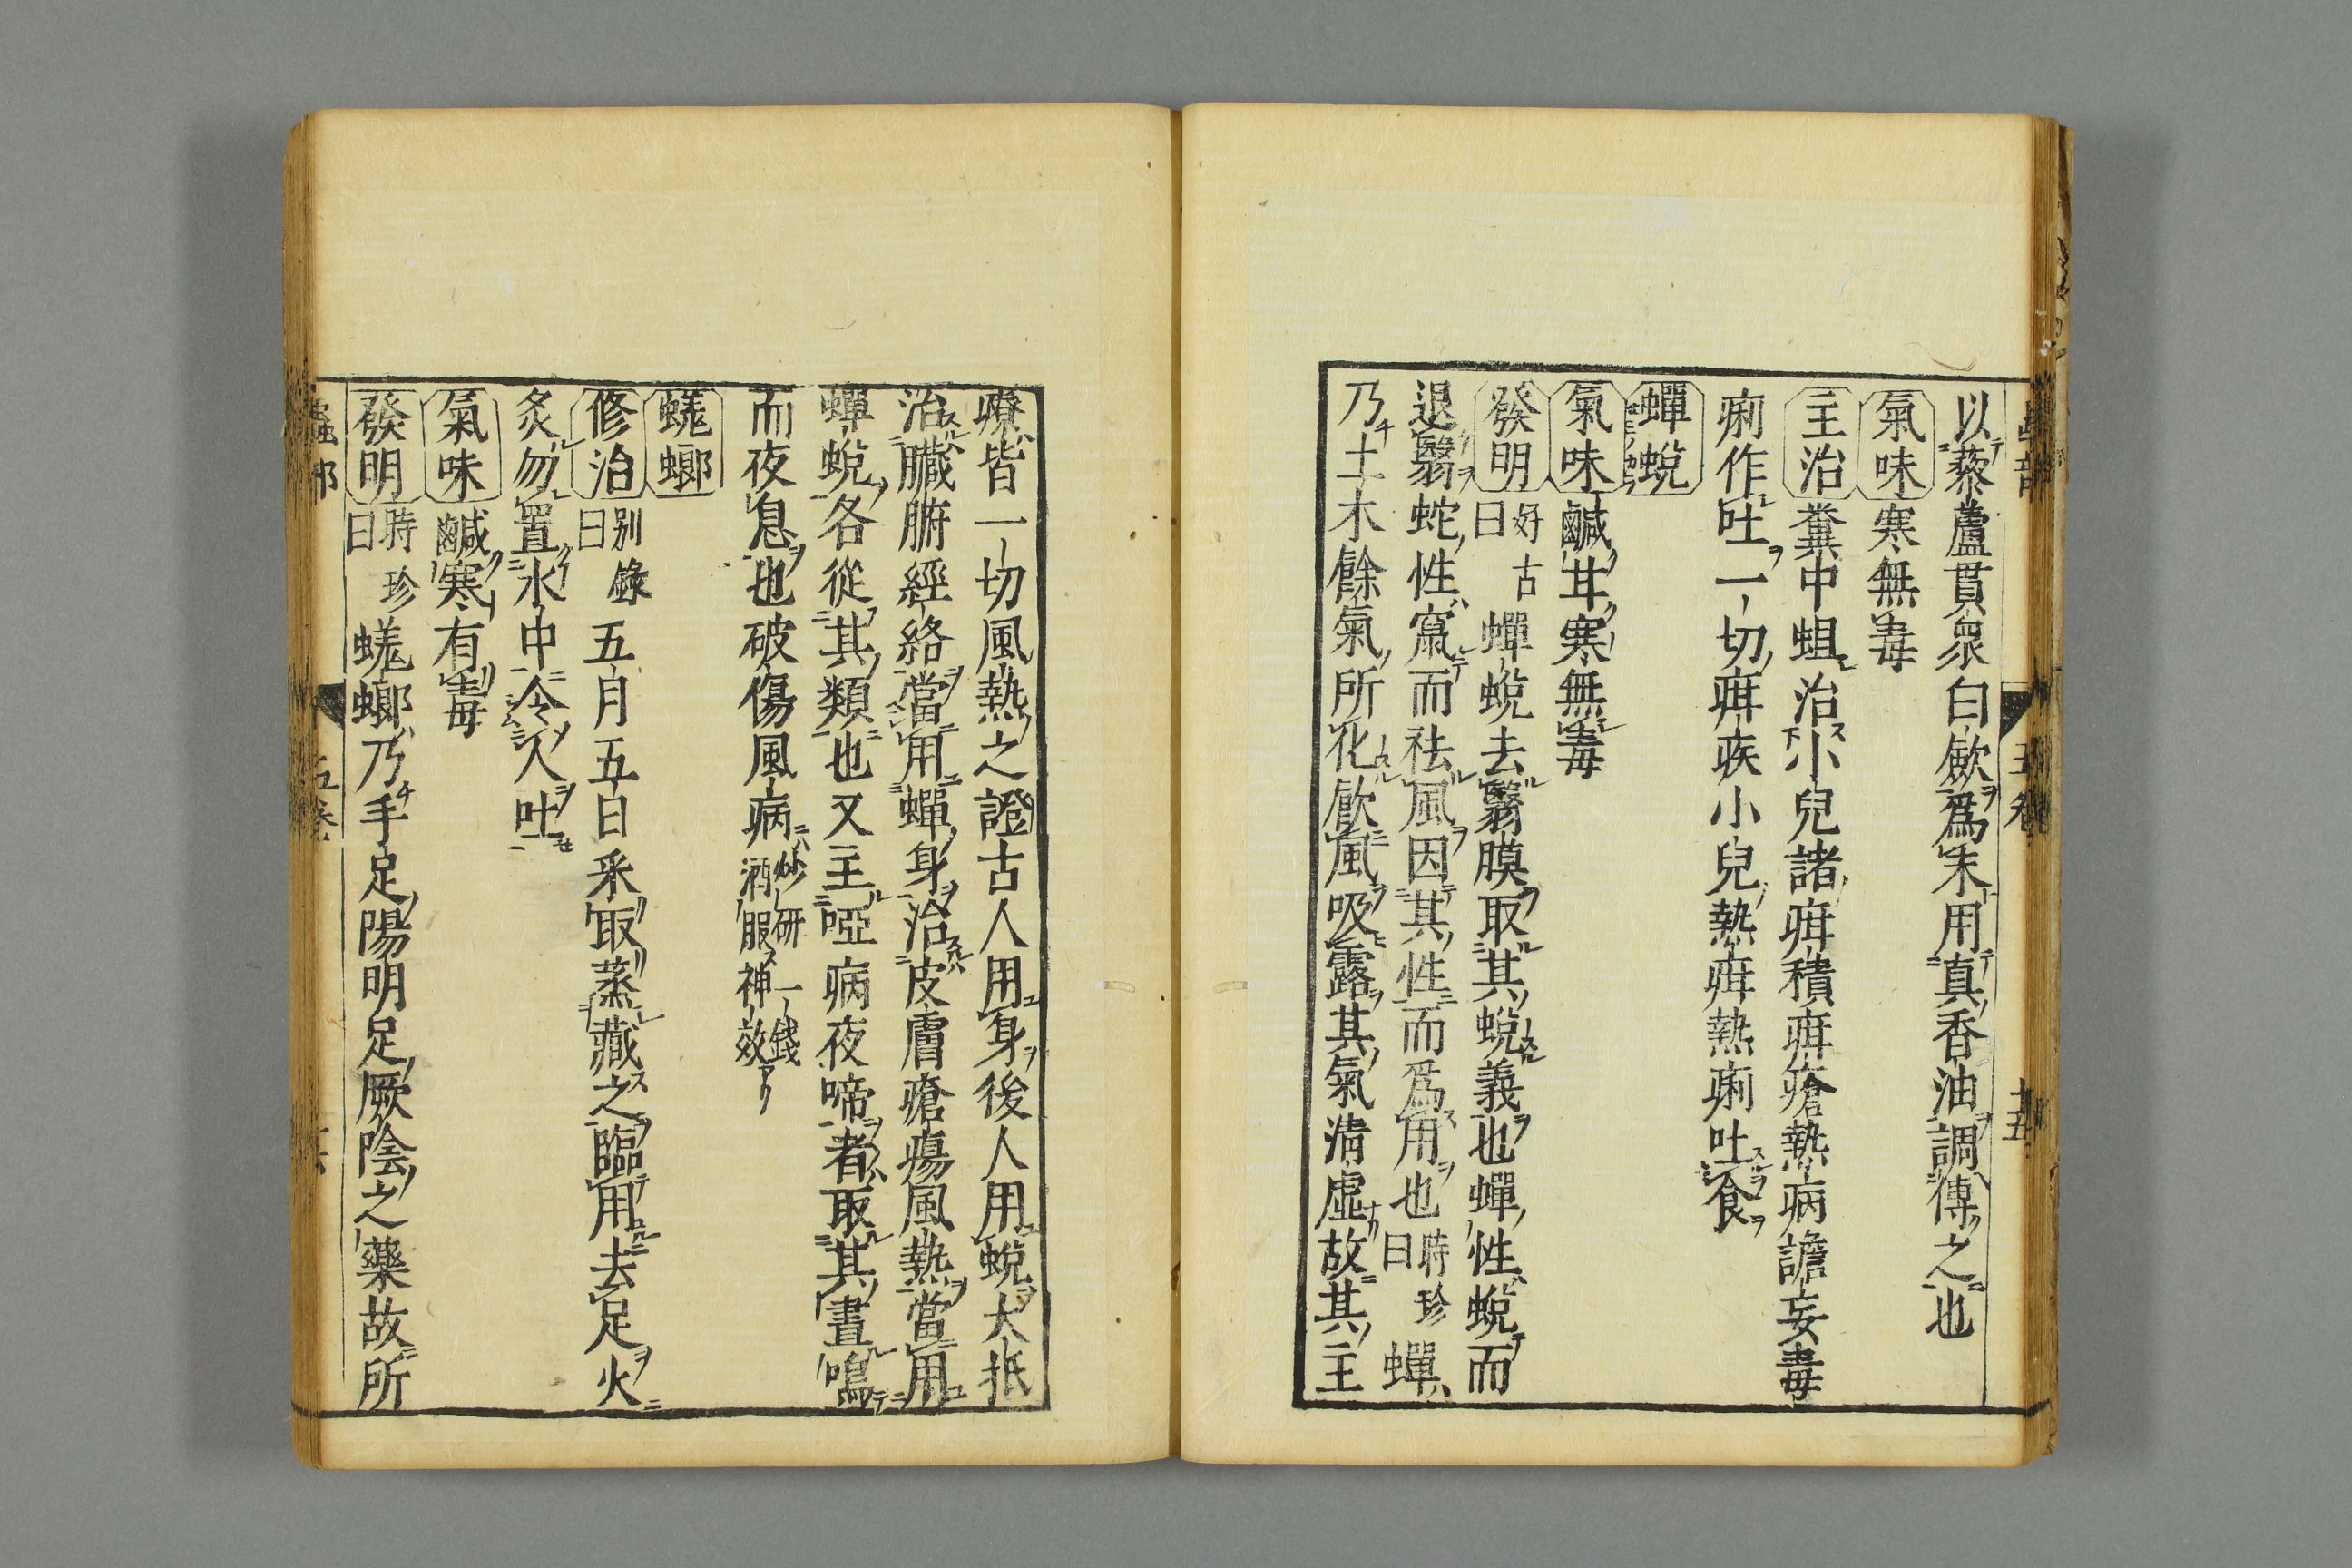 以藜蘆貫衆白歛爲末用真香油調傅之也
氣味 寒無毒
主治 糞中蛆治小兒諸疳積疳瘡熱病譫妄毒
痢作吐一切疳疾小兒熱疳熱痢吐食
蟬蛻
氣味 鹹甘寒無毒
發明 好古曰蟬蛻去翳膜取其蛻義也蟬性蛻而
退翳蛇性竄而祛風因其性而爲用也時珍曰蟬
乃土木餘氣所化飲風吸露其氣清虛故其主
五卷
十五
療皆一切風熱之證古人用身後人用蛻大抵
治臓腑經絡當用蟬身治皮膚瘡瘍風熱當用
蟬蛻各從其類也又主啞病夜啼者取其晝鳴
而夜息也破傷風病炒研一錢酒服神效
蜣螂
修治 别錄曰五月五日采取蒸藏之臨用去足火
炙勿置水中令人吐
氣味 鹹寒有毒
發明 時珍曰蜣螂乃手足陽明足厥陰之藥故所
蟲部
五卷